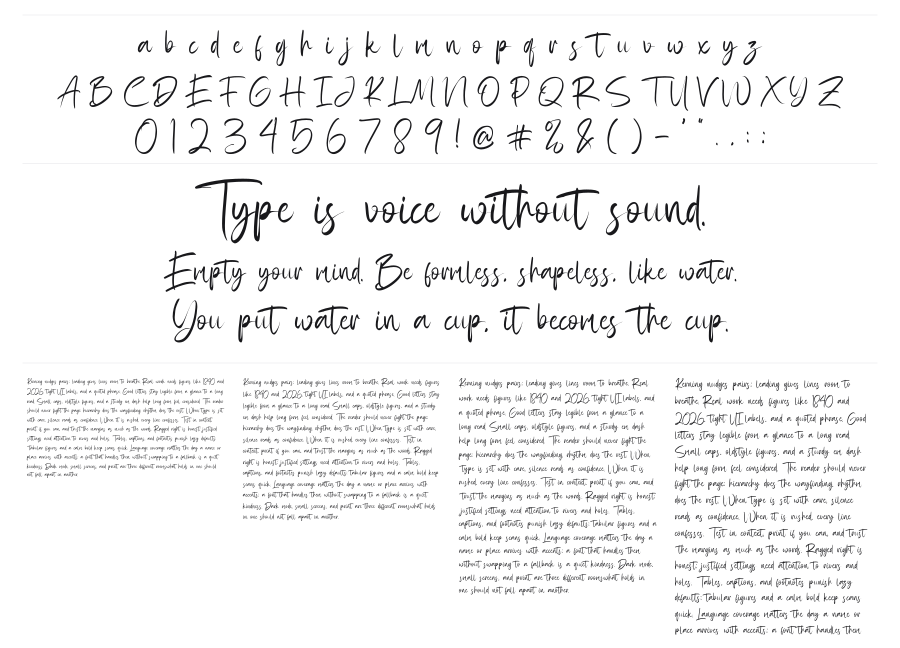 a b c d e f g h i j k l m n o p q r s t u v w x y z
A B C D E F G H I J K L M N O P Q R S T U V W X Y Z
0 1 2 3 4 5 6 7 8 9 ! @ # % & ( ) - ' " . , : ;
Type is voice without sound.
Empty your mind. Be formless, shapeless, like water.
You put water in a cup, it becomes the cup.
Kerning nudges pairs; leading gives lines room to breathe. Real work needs figures like 1840 and
2026, tight UI labels, and a quoted phrase. Good letters stay legible from a glance to a long
read. Small caps, oldstyle figures, and a sturdy en dash help long form feel considered. The reader
should never fight the page: hierarchy does the wayfinding, rhythm does the rest. When type is set
with care, silence reads as confidence. When it is rushed, every line confesses. Test in context,
print if you can, and trust the margins as much as the words. Ragged right is honest; justified
settings need attention to rivers and holes. Tables, captions, and footnotes punish lazy defaults.
Tabular figures and a calm bold keep scans quick. Language coverage matters the day a name or
place arrives with accents; a font that handles them without swapping to a fallback is a quiet
kindness. Dark mode, small screens, and print are three different rooms; what holds in one should
not fall apart in another.
Kerning nudges pairs; leading gives lines room to breathe. Real work needs figures
like 1840 and 2026, tight UI labels, and a quoted phrase. Good letters stay legible
from a glance to a long read. Small caps, oldstyle figures, and a sturdy
en dash help long form feel considered. The reader should never fight the page:
hierarchy does the wayfinding, rhythm does the rest. When type is set with care,
silence reads as confidence. When it is rushed, every line confesses. Test in
context, print if you can, and trust the margins as much as the words. Ragged
right is honest; justified settings need attention to rivers and holes. Tables,
captions, and footnotes punish lazy defaults. Tabular figures and a calm bold keep
scans quick. Language coverage matters the day a name or place arrives with
accents; a font that handles them without swapping to a fallback is a quiet
kindness. Dark mode, small screens, and print are three different rooms; what holds
in one should not fall apart in another.
Kerning nudges pairs; leading gives lines room to breathe. Real
work needs figures like 1840 and 2026, tight UI labels, and
a quoted phrase. Good letters stay legible from a glance to a
long read. Small caps, oldstyle figures, and a sturdy en dash
help long form feel considered. The reader should never fight the
page: hierarchy does the wayfinding, rhythm does the rest. When
type is set with care, silence reads as confidence. When it is
rushed, every line confesses. Test in context, print if you can, and
trust the margins as much as the words. Ragged right is honest;
justified settings need attention to rivers and holes. Tables,
captions, and footnotes punish lazy defaults. Tabular figures and a
calm bold keep scans quick. Language coverage matters the day a
name or place arrives with accents; a font that handles them
without swapping to a fallback is a quiet kindness. Dark mode,
small screens, and print are three different rooms; what holds in
one should not fall apart in another.
Kerning nudges pairs; leading gives lines room to
breathe. Real work needs figures like 1840 and
2026, tight UI labels, and a quoted phrase. Good
letters stay legible from a glance to a long read.
Small caps, oldstyle figures, and a sturdy en dash
help long form feel considered. The reader should never
fight the page: hierarchy does the wayfinding, rhythm
does the rest. When type is set with care, silence
reads as confidence. When it is rushed, every line
confesses. Test in context, print if you can, and trust
the margins as much as the words. Ragged right is
honest; justified settings need attention to rivers and
holes. Tables, captions, and footnotes punish lazy
defaults. Tabular figures and a calm bold keep scans
quick. Language coverage matters the day a name or
place arrives with accents; a font that handles them